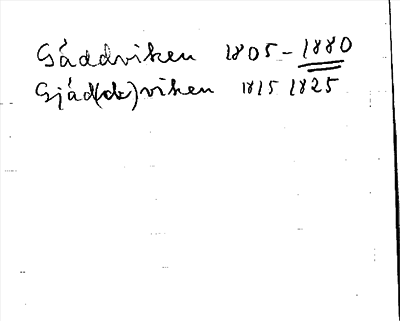 Gáddviken 1805-1880
Gjád(de)viken 1815 1825